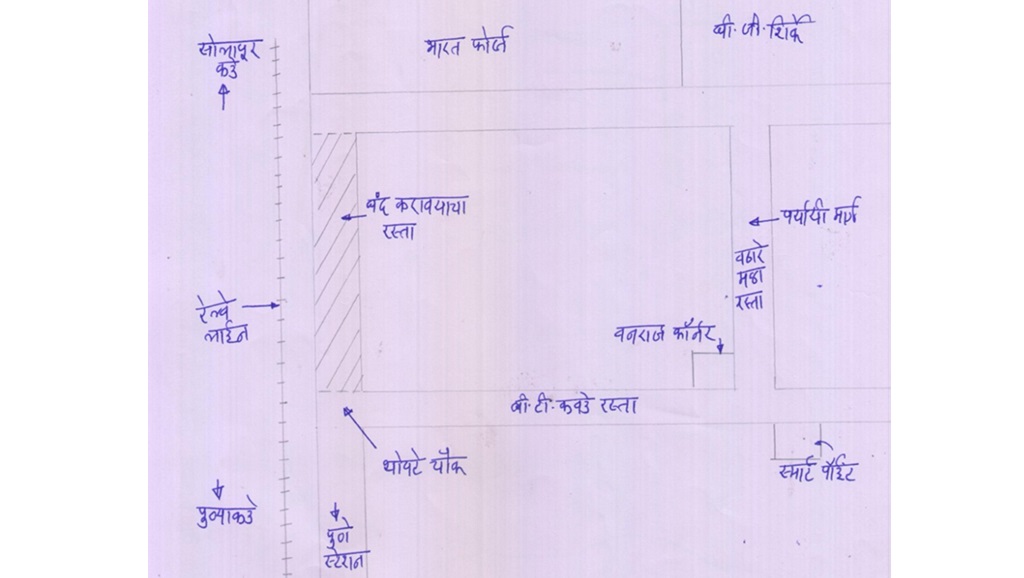 सोलापूर
कडे
भारत फोर्ज
बी.जी.शिर्के
बंद करावयाचा
रस्ता
पर्यायी मार्ग
वठारे
मळा
रस्ता
रेल्वे
लाईन
वनराज कॉर्नर
बी.टी.कवडे रस्ता
थोपटे चौक
स्मार्ट पॉईंट
पुण्याकडे
पुणे
स्टेशन